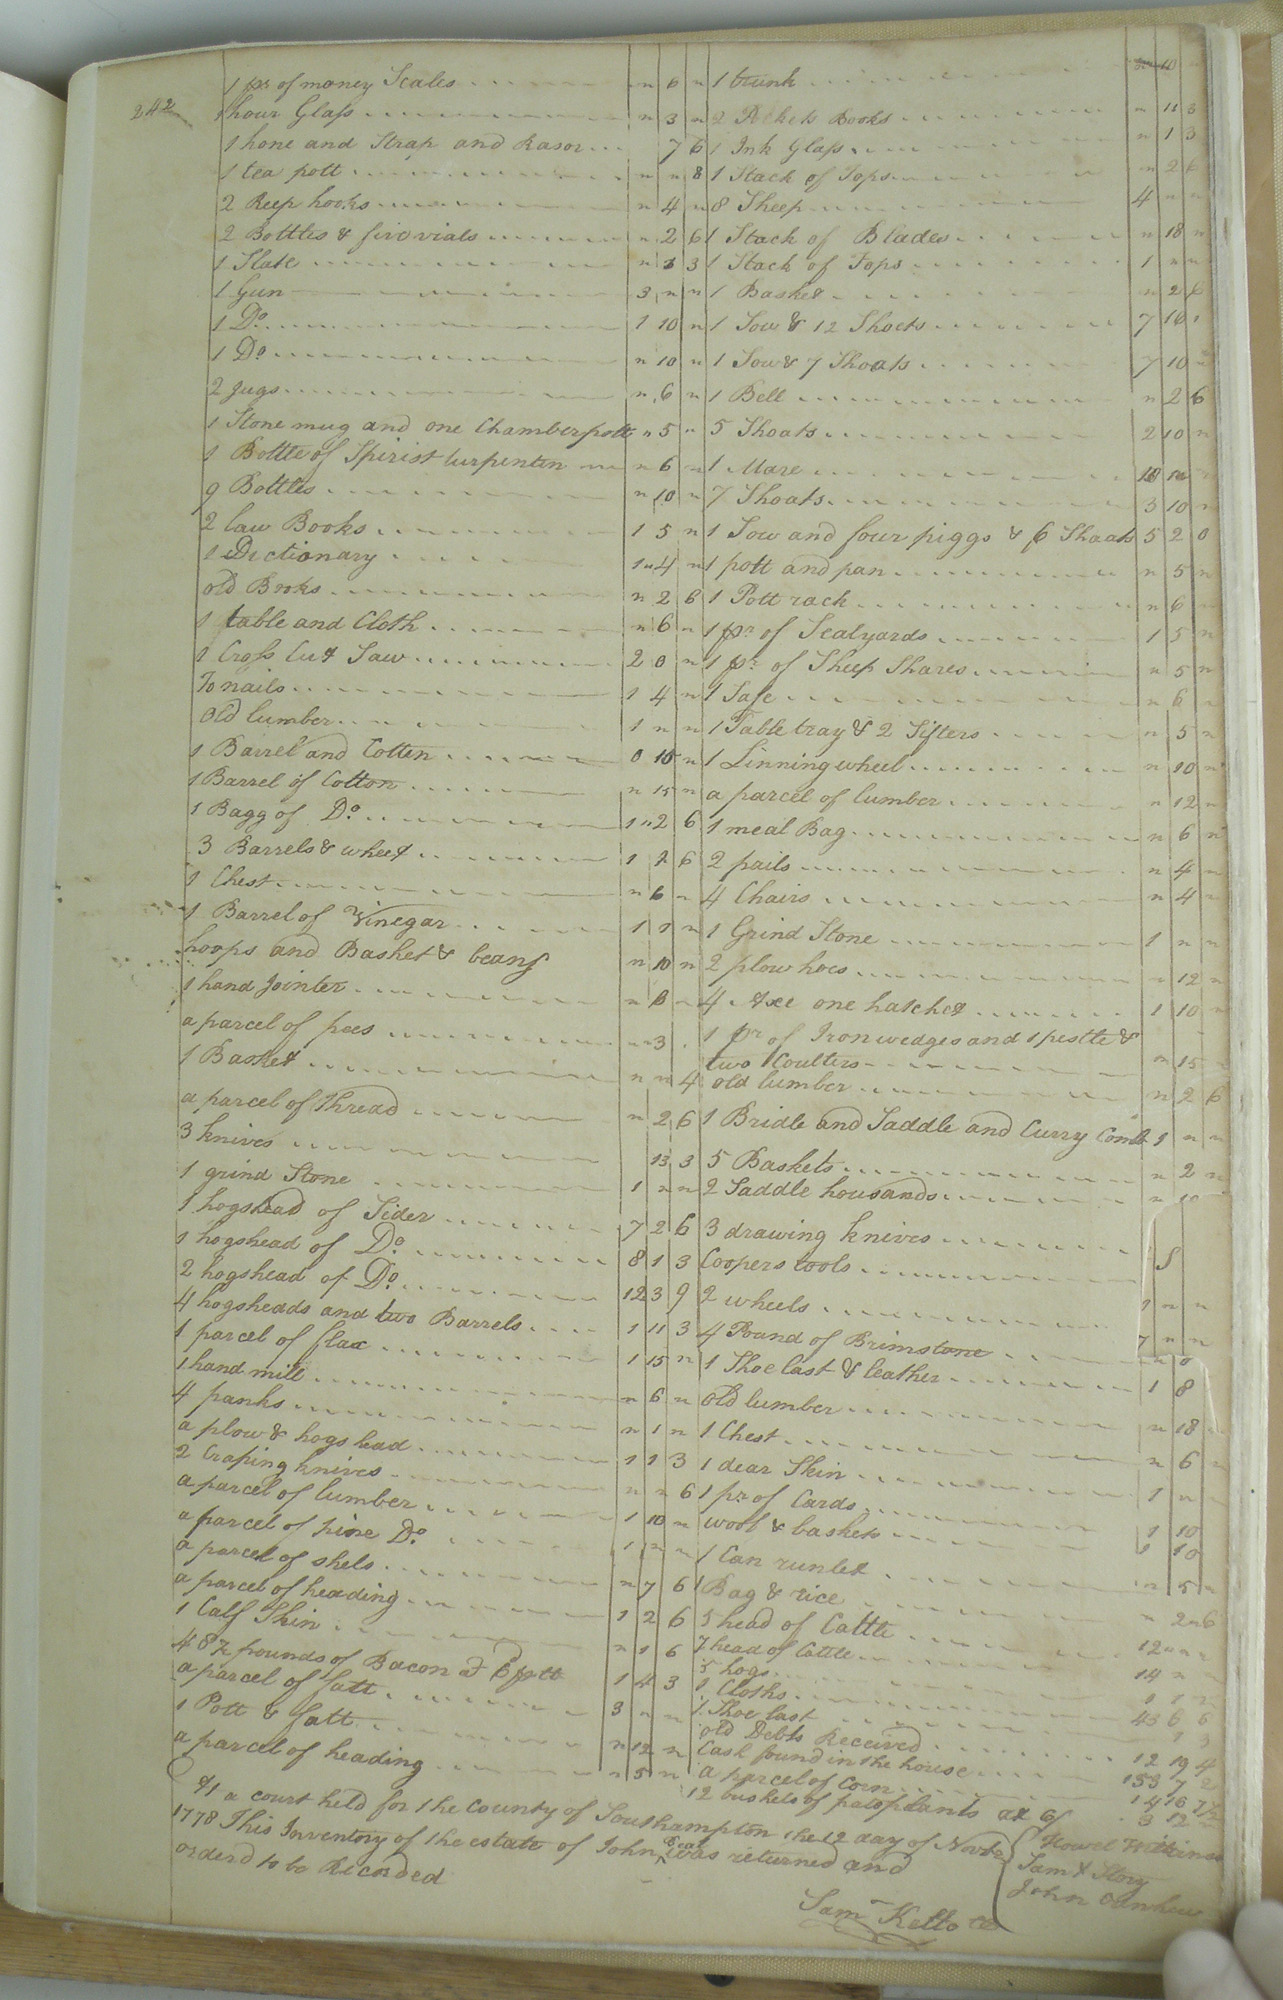 242
1 pr. of money Scales " 6 "
1 hour Glass " 3 "
1 hone and Strap and Rasor 7 6
1 tea pott " " 8
2 Reep hooks " 4 "
2 Bottles & five vials " 2 6
1 Slate " 3 3
1 Gun 3 " "
1 Do. 1 10 "
1 Do. " 10 "
2 Jugs " 6 "
1 Stone mug and one Chamberpott " 5 "
1 Bottle of Spirist turpenten " 6 "
9 Bottles " 10 "
2 law Books 1 5 "
1 Dictionary 1 " 4 "
old Books " 2 6
1 table and Cloth " 6 "
1 Cross Cut Saw 2 0 "
To nails 1 4 "
Old lumber 1 " "
1 Barrel and Cotten 0 10 "
1 Barrel of Cotton " 15 "
1 Bagg of Do. 1 " 2 6
3 Barrels & wheet 1 2 6
1 Chest " 6 "
1 Barrel of Vinegar 1 1 "
hoops and Basket & beans " 10 "
1 hand Jointer " 8 "
a parcel of pees " " 3
1 Basket " " 4
a parcel of Thread " 2 6
3 knives 13 3
1 grind Stone 1 " "
1 hogshead of Sider 7 2 6
1 hogshead of Do. 8 1 3
2 hogshead of Do. 12 3 9
4 hogsheads and two Barrels 1 11 3
1 parcel of flax 1 15 "
1 hand mill " 6 "
4 panks " 1 "
a plow & hogs lead 1 1 3
2 Craping knives " " 6
a parcel of lumber 1 10 "
a parcel of pine Do. 1 " "
a parcel of shels " 7 6
a parcel of heading 1 2 6
1 Calf Skin " 1 6
48½ pounds of Bacon 1 4 3
a parcel of Salt 3 " "
1 Pott & Salt " 12 "
a parcel of heading " 5 "
1 trunk 10
2 Pockets Books " 11 3
1 Ink Glass " 1 3
1 Stack of Tops " 2 6
8 Sheep 4 " "
1 Stack of Blades " 18 "
1 Stack of Tops 1 " "
1 Basket " 2 6
1 Sow & 12 Shoets 7 10
1 Sow & 7 Shoats 7 10
1 Bell " 2 6
5 Shoats 2 10 "
1 Mare 10 10
7 Shoats 3 10 "
1 Sow and four piggs & 6 Shoats 5 2 0
1 pott and pan " 5 "
1 Pott rack " 6
1 pr. of Sealyards 1 5 "
1 pr. of Sheep Shares " 5 "
1 Safe " 6
1 Table tray & 2 Sifters " 5 "
1 Linning wheel " 10 "
a parcel of lumber " 12 "
1 meal Bag " 6 "
2 pails " 4 "
4 Chairs " 4
1 Grind Stone 1 " "
2 plow hoes " 12 "
4 Axe one hatchet 1 10 "
1 pr of Iron wedges and 1 pestle &
two Coulters " 15
old lumber " 2 6
1 Bridle and Saddle and Curry Comb 1 " "
5 Baskets " 2 "
2 Saddle housands " 10
3 drawing knives
Coopers tools 5
2 wheels 1 " "
4 Pound of Brimstone
1 Shoe last & leather 1 8
old lumber " 18
1 Chest " 6
1 dear Skin 1 "
1 pr of Cards 1 10
wool & baskets 10
1 Can runlet " 5 "
1 Bag & rice " 2 " 6
5 head of Cattle 12 " "
7 head of Cattle 14 "
5 hogs
1 Cloths 43 6 6
1 Shoe last
old Debts Received 12 19 4
Cash found in the house 153 7 2
a parcel of Corn 14 16
12 bushels of 3 12
At a court held for the County of Southampton the 12 day of Novbr
1778 This Inventory of the estate of John Beal was returned and
orderd to be Recorded
Howel
Sam Story
John
Sam Kello CC